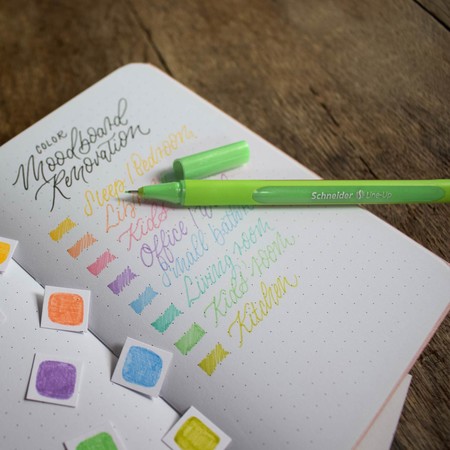 COLOR
Moodboard
Renovation
Sleep/Bedroom
Kids
Office /
Small bath
Living room
Kid's room
Kitchen
Schneider Line-Up